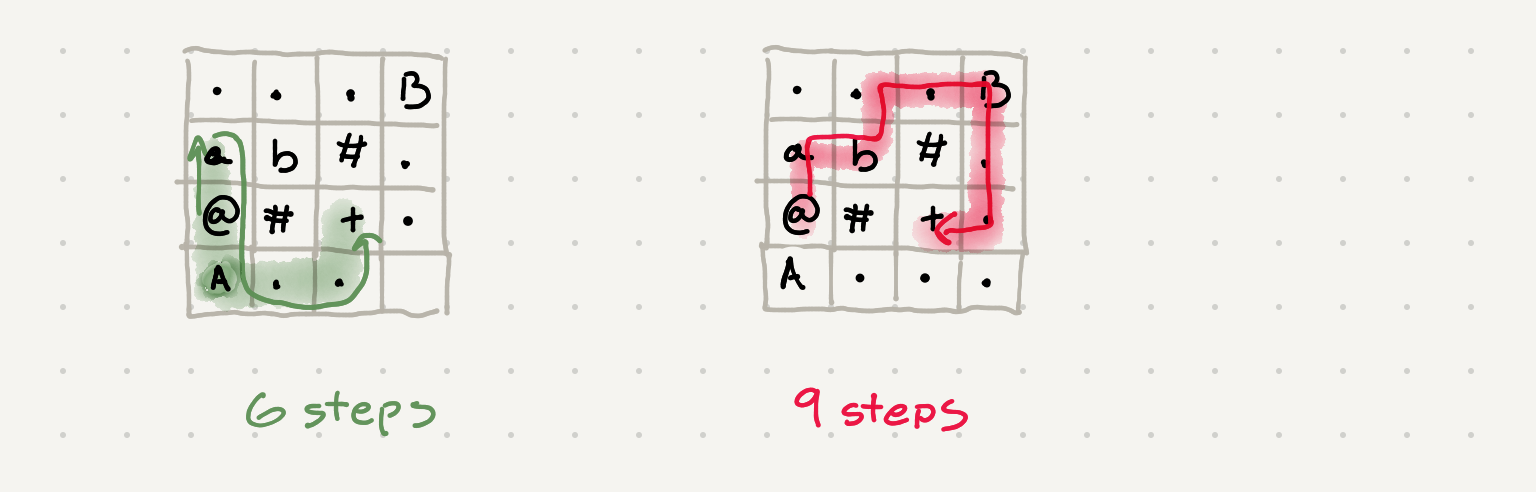 . . . B
a b # .
@ # + .
A . .
6 steps
. . . B
a b # .
@ # + .
A . . .
9 steps